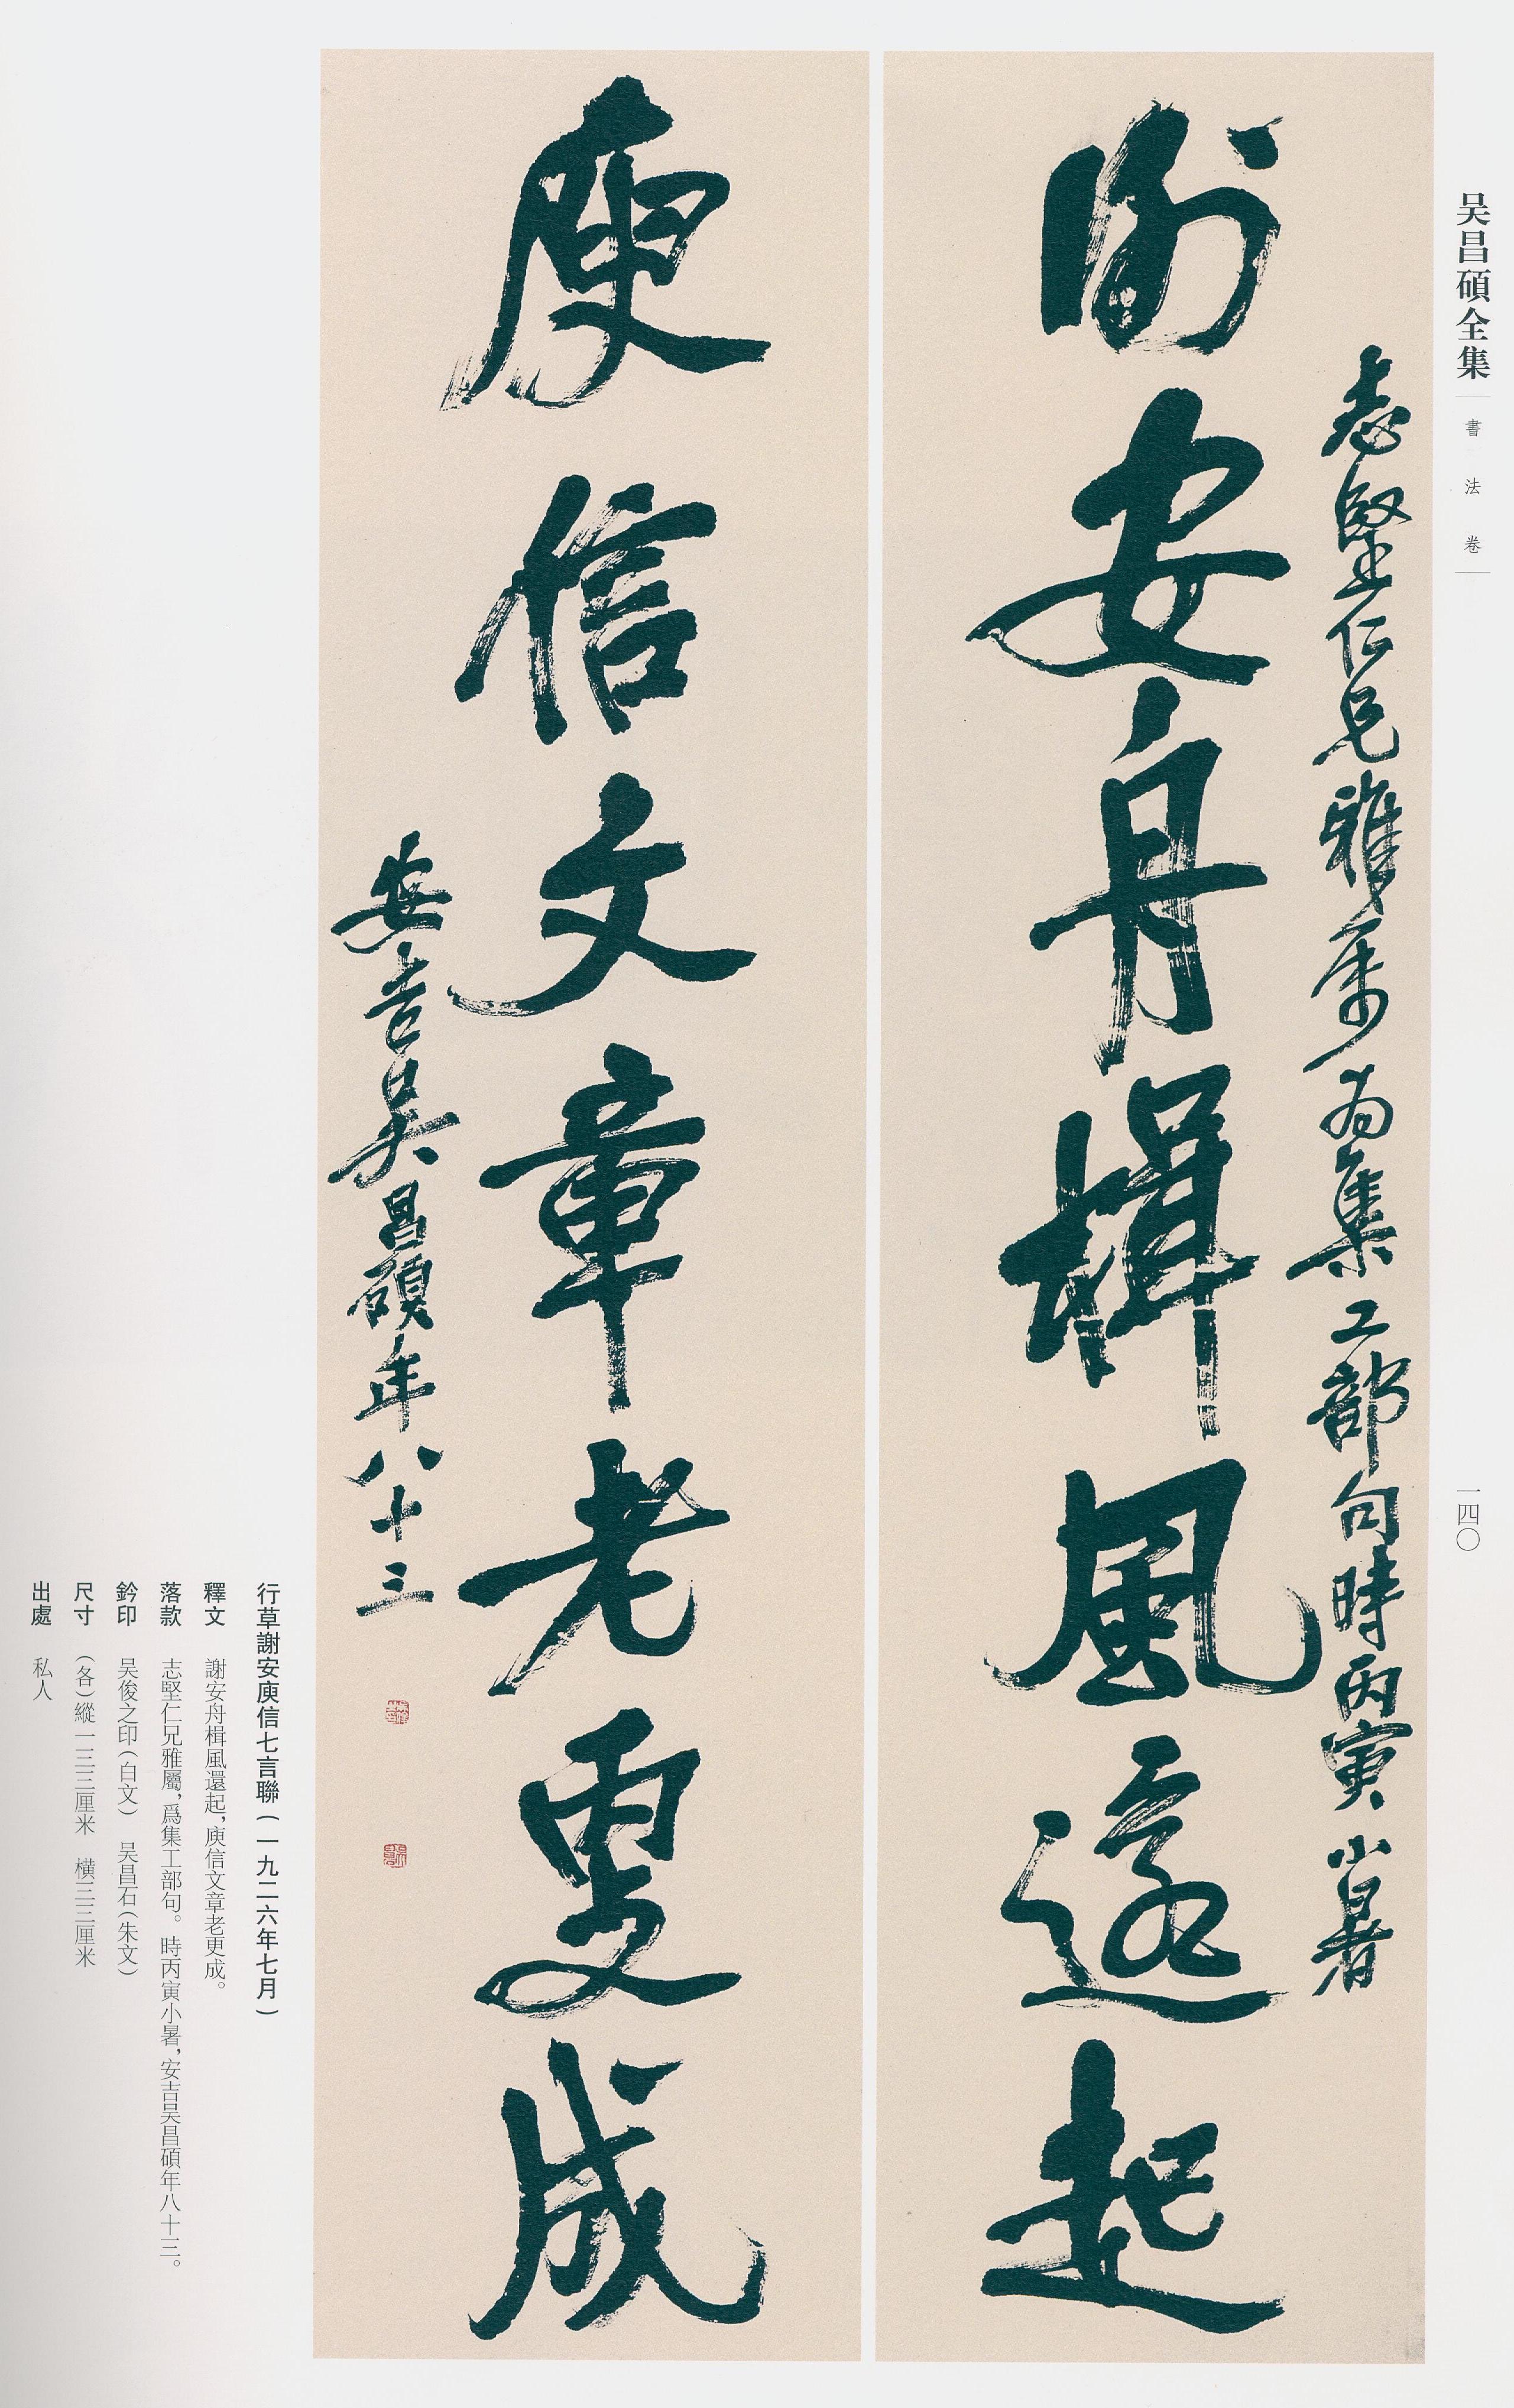 吴昌碩全集
書法卷
一四〇
志堅仁兄雅屬為集工部句時丙寅小暑
謝安舟楫風還起
庾信文章老更成
安吉吴昌碩年八十三
行草謝安庾信七言聯(一九二六年七月)
釋文 謝安舟楫風還起,庾信文章老更成。
落款 志堅仁兄雅屬,爲集工部句。時丙寅小暑,安吉吴昌碩年八十三。
鈐印 吴俊之印(白文) 吴昌石(朱文)
尺寸 (各)縱一三三厘米 橫三三厘米
出處 私人